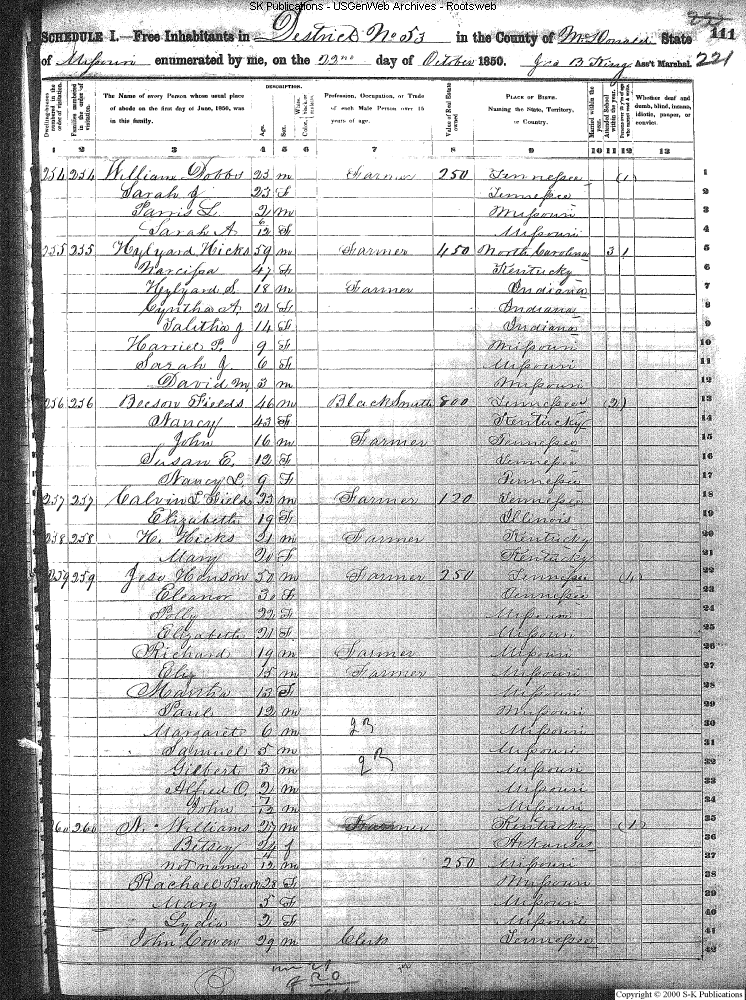 SK Publications - USGenWeb Archives - Rootsweb
SCHEDULE I.—Free Inhabitants in District No 53 in the County of McDonald State 111
of Missouri enumerated by me, on the 22nd day of October 1850. Ass't Marshal. 221
Dwelling-houses numbered in the order of visitation.
Families numbered in the order of visitation.
The Name of every Person whose usual place of abode on the first day of June, 1850, was in this family.
DESCRIPTION.
Age.
Sex.
White, black, or mulatto.
Profession, Occupation, or Trade of each Male Person over 15 years of age.
Value of Real Estate owned
PLACE OF BIRTH. Naming the State, Territory, or Country.
Married within the year.
Attended School within the year.
Persons over 20 y'rs of age who cannot read & write.
Whether deaf and dumb, blind, insane, idiotic, pauper, or convict.
1 2 3 4 5 6 7 8 9 10 11 12 13
254 254 William Dobbs 23 m Farmer 250 Tennessee (1) 1
Sarah J 23 F Tennessee 2
L. 2 m Missouri 3
Sarah A 6/12 F Missouri 4
235 255 Hylyard Hicks 59 m Farmer 450 North Carolina 3 1 5
Narcissa 47 F Kentucky 6
Hylyard S. 18 m Farmer Indiana 7
Cyntha A. 21 F Indiana 8
Talitha J 14 F Indiana 9
Harriet P. 9 F Missouri 10
Sarah J. 6 F Missouri 11
David M 3 m Missouri 12
256 256 Fields 46 m BlackSmith 800 Tennessee (2) 13
Nancy 43 F Kentucky 14
John 16 m Farmer Tennessee 15
Susan E. 12 F Tennessee 16
Nancy L. 9 F Tennessee 17
257 257 Calvin L Fields 23 m Farmer 120 Tennessee 18
Elizabeth 19 F Illinois 19
258 258 H. Hicks 21 m Farmer Kentucky 20
Mary 20 F Kentucky 21
259 259 Jese Henson 50 m Farmer 250 Tennessee (4) 22
Eleanor 30 F Tennessee 23
Polly 22 F Missouri 24
Elizabeth 21 F Missouri 25
Richard 19 m Farmer Missouri 26
Eli 15 m Farmer Missouri 27
Martha 13 F Missouri 28
Paul 12 m Missouri 29
Margaret 6 m Missouri 30
Samuel 5 m Missouri 31
Gilbert 3 m Missouri 32
Alfred O. 2 m Missouri
John 7/12 m Missouri
260 260 Williams 27 m Farmer Kentucky (1) 35
Betsey 24 f Arkansas 36
not named 4/12 m 250 Missouri 37
Rachael 28 F Missouri 38
Mary 5 F Missouri 39
Lydia 2 F Missouri 40
John Cowen 29 m Clerk Tennessee 41
42
20
Copyright © 2000 S-K Publications